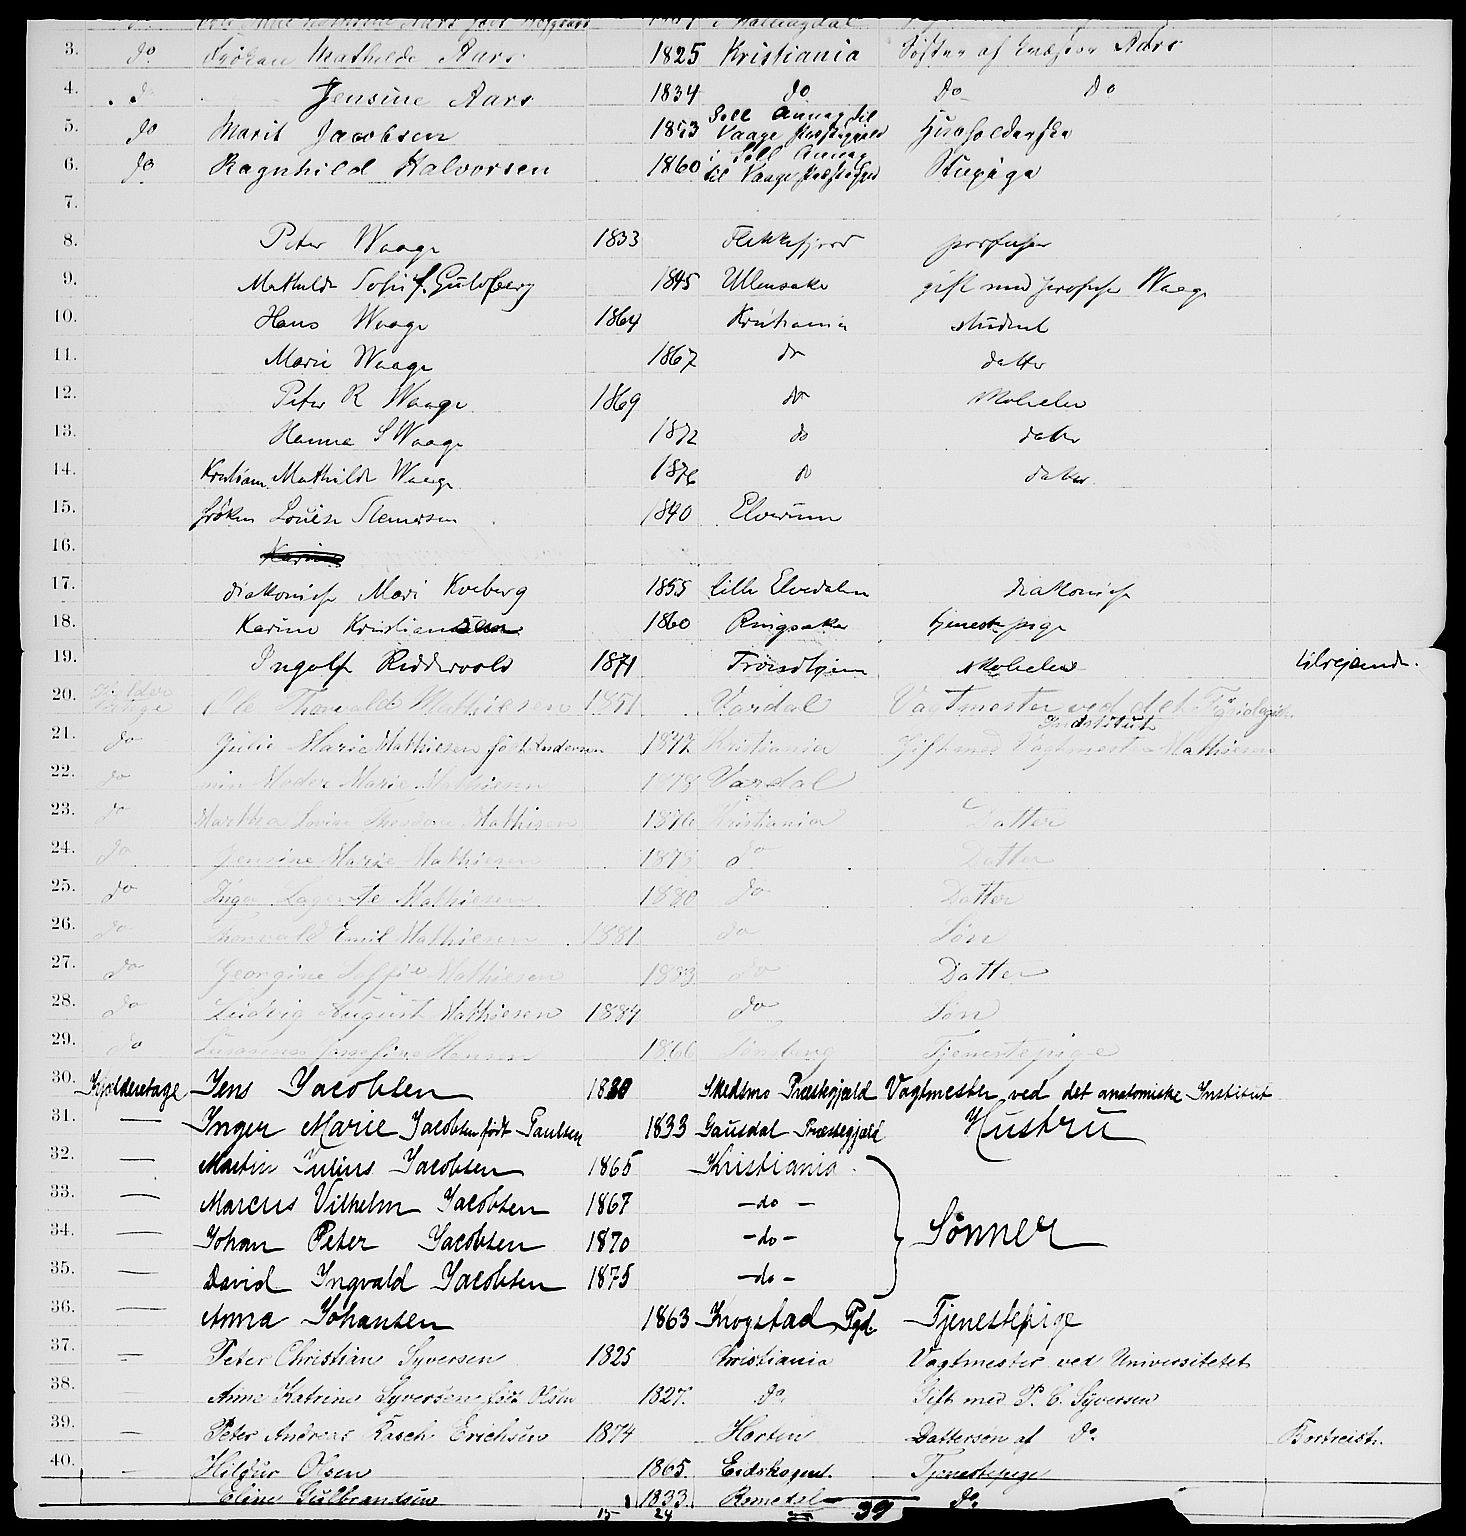 3. do Frøken Mathilde Aars 1825 Kristiania Søster af Aars
4. do Jensine Aars 1834 do do do
5. do Marit Jacobsen 1853 Sell Annex til Vaage Præstegjeld Husholderske
6. do Ragnhild Halvorsen 1860 i Sell Annex til Vaage Præstegjeld Stuepige
7.
8. Peter Waage 1833 Flekkefjord professor
9. Mathilde Sofie f. Guldberg 1845 Ullensaker gift med professor Waage
10. Hans Waage 1864 Kristiania student
11. Marie Waage 1867 do datter
12. Peter R Waage 1869 do skoleelev
13. Hanna S Waage 1872 do datter
14. Kristiane Mathilde Waage 1876 do datter
15. frøken Louise 1840 Elverum
16. Karine
17. diakonisse Mari Kveberg 1855 Lille Elvedalen diakonisse
18. Karine Kristiansen 1860 Ringsaker tjenestepige
19. Ingolf Ridderwold 1871 Trondhjem skoleelev tilreisende.
20. Kjelder Etage Ole Thorvald Mathiesen 1851 Vardal Vagtmester ved det Institut
21. do Julie Marie Mathiesen født Andersen 1847 Kristiania Gift med Vagtmester Mathiesen
22. do min Moder Marie Mathiesen Vardal
23. do Martha Mathisen 1876 Kristiania Datter
24. do Jensine Marie Mathiesen 1878 do Datter
25. do Inga Mathiesen 1880 do Datter
26. do Thorvald Emil Mathiesen 1881 do Søn
27. do Georgine Soffie Mathiesen 1883 do Datter
28. do Ludvig August Mathiesen 1884 do Søn
29. do Josefine Hansen 1866 Tønsberg Tjenestepige
30. Kjelderetage Jens Jacobsen 1830 Skedsmo Præstegjæld Vagtmester ved det anatomiske Institut
31. — Inger Marie Jacobsen født Paulsen 1833 Gausdal Præstegjæld Hustru
32. — Martin Julius Jacobsen 1865 Kristiania
33. — Marcus Vilhelm Jacobsen 1867 — do —
34. — Johan Peter Jacobsen 1870 — do — Sønner
35. — David Ingvald Jacobsen 1875 — do —
36. — Anna Johansen 1863 Krogstad Pgd. Tjenestepige
37. — Peter Christian Syversen 1825 Christiania Vagtmester ved Universitetet
38. — Anne Katrine Syversen født Olsen 1827. do. Gift med P. C. Syversen
39. — Peter Andreas Rasch Erichsen 1874 Horten Dattersøn af do. Bortreist.
40. — Hildur Olsen 1865. Eidskogen. Tjenestepige
Eline Gulbrandsen 1833. Romedal do.
15 24 39